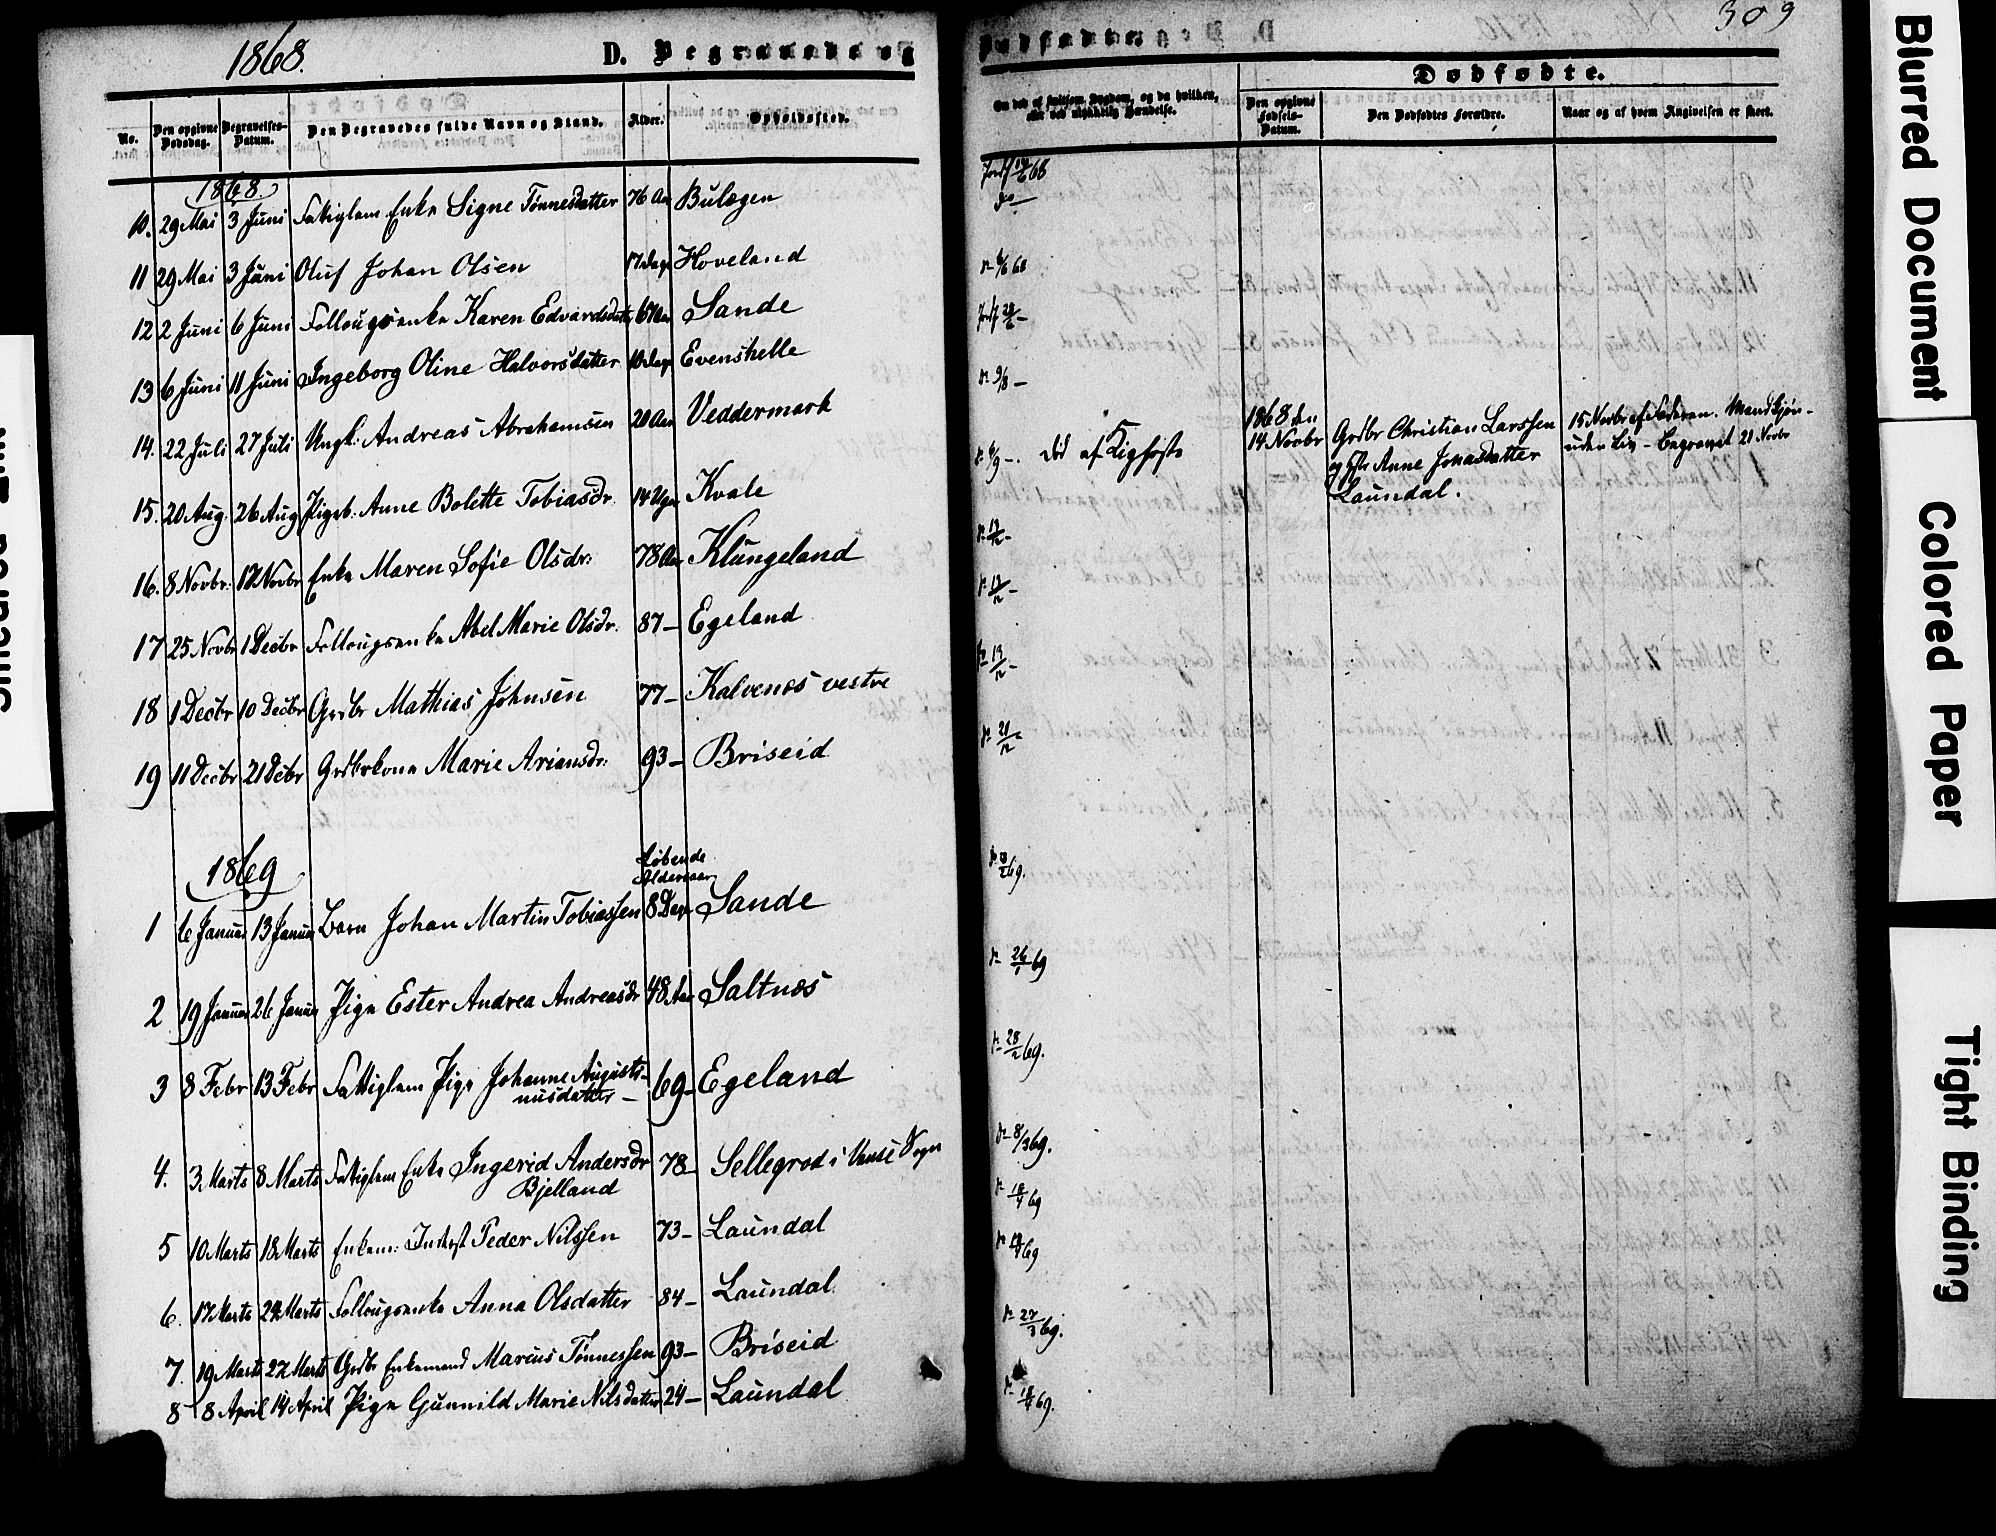 1868.
D. Begravede og
No.
Den opgivne Dødsdag.
Begravelses-Datum.
Den Begravedes fulde Navn og Stand.
Alder.
Opholdssted.
1868
10. 29 Mai 3 Juni Fattiglem Enke Signe Tønnesdatter 76 Aar Bulægen
11 29 Mai 3 Juni Oluf Johan Olsen 17 Dage Hoveland
12 2 Juni 6 Juni Follougsenke Karen Edvardsdatr 67 Aar Sande
13 6 Juni 11 Juni Ingeborg Oline Halvorsdatter Dage Evenshelle
14. 22 Juli 27 Juli Ungk. Andreas Abrahamsen 20 Aar Veddermark
15. 20 Aug. 26 Aug Pigeb. Anne Bolette Tobiasdr. 14 Uger Kvale
16. 8 Novbr. 17 Novbr Enke Maren Sofie Olsdr. 78 Aar Klungeland
17 25 Novbr 1 Decbr Follougsenke Abel Marie Olsdr. 87 – Egeland
18 1 Decbr 10 Decbr Grdbr Mathias Johnsen 77 – Kalvenes vestre
19 11 Decbr 21 Debr Grdbrkone Marie Ariansdr. 93 – Briseid
1869
Løbende
Aldersaar
1 6 Januar 13 Januar Barn Johan Martin Tobiassen 8 Dage Sande
2 19 Januar 26 Januar Pige Ester Andrea Andreasdr 48 Aar Saltnes
3 8 Febr 13 Febr Fattiglem Pige Johanne Augusti-
nusdatter – 69 – Egeland
4. 3 Marts 8 Marts Fattiglem Enke Ingerid Andersdr 78 – Sellegrod i Vanse Sogn
Bjelland
5 10 Marts 18 Marts Enkem. Inderst Peder Nilssen 73 – Laundal
6. 17 Marts 24 Marts Follougsenke Anna Olsdatter 84 – Laundal
7. 19 Marts 27 Marts Grdbr Enkemand Marcus Tønnessen 93 – Briseid
8 8 April 14 April Pige Gunnild Marie Nilsdatter 24 – Laundal
309
Dødfødte.
Om død af smitsom Sygdom, og da hvilken,
eller ved ulykkelig Hændelse.
Den opgivne Fødsels-Datum.
Den Dødfødtes Forældre.
Naar og af hvem Angivelsen er skeet.
død af Ligfoste
1868 den
14 Novbr
Grdbr Christian Larssen
og Hstr Anne Jonasdatter
Laundal.
15 Novbr af Faderen. Mandkjøn –
uden Liv – Begravet 21 Novbr
Blurred Document
Colored Paper
Tight Binding